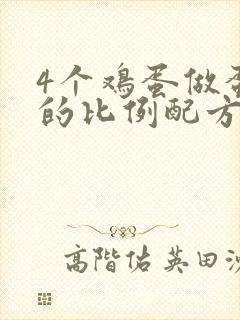 4个鸡蛋做蛋
的比例配方
高階佑英田